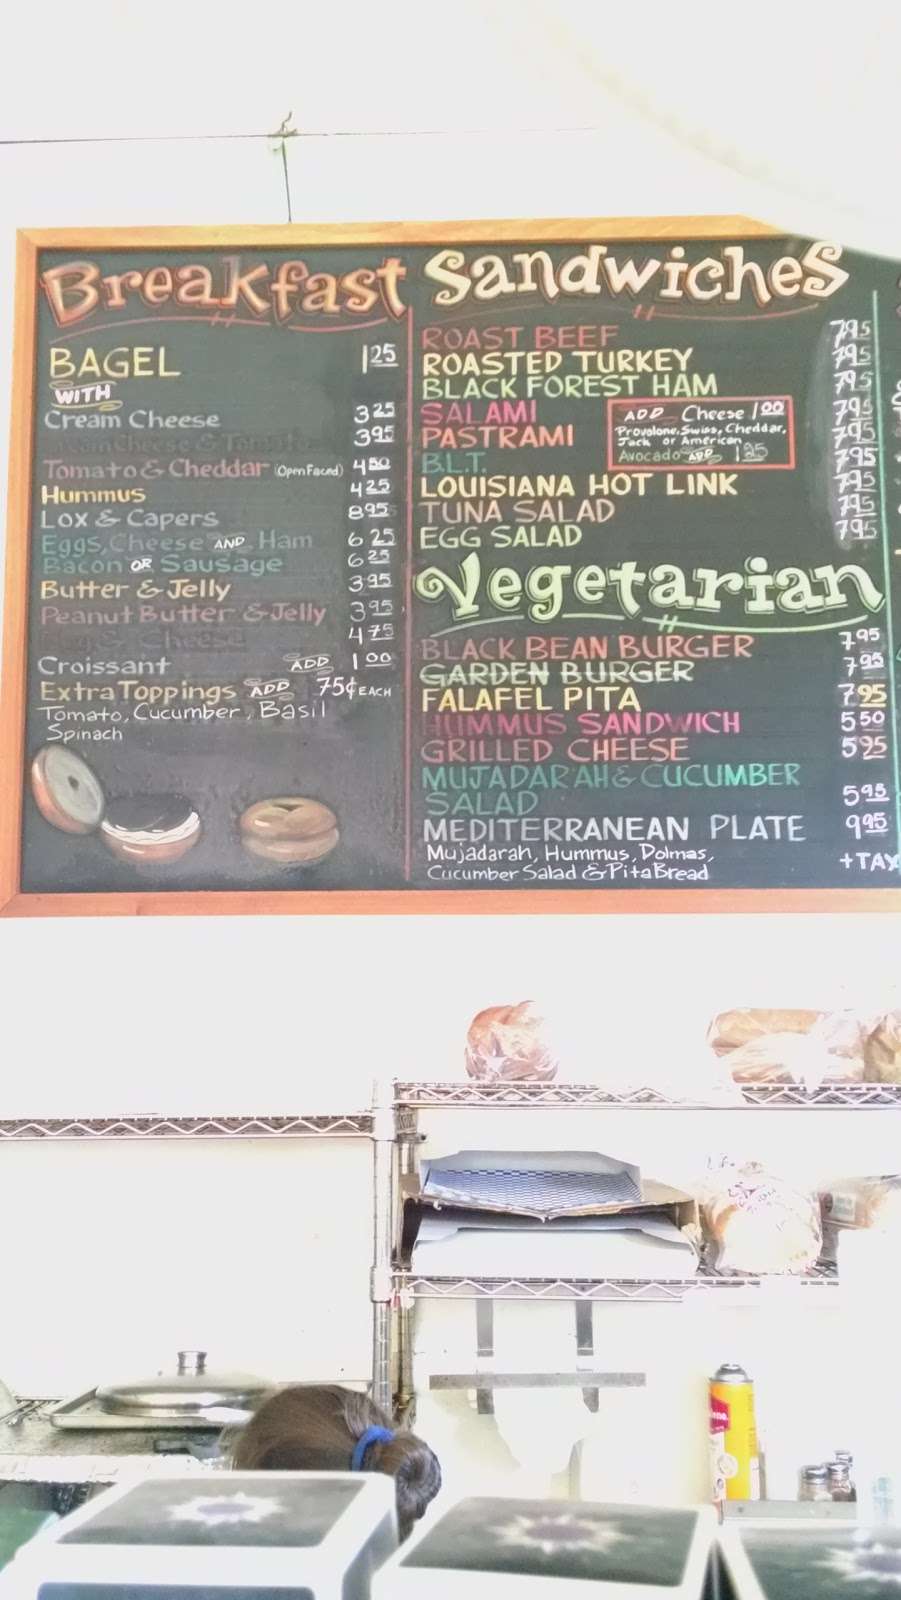 Breakfast
BAGEL 1 25
WITH
Cream Cheese 3 25
Cream Cheese & Tomato 3 95
Tomato & Cheddar (Open Faced) 4 50
Hummus 4 25
Lox & Capers 8 95
Eggs, Cheese AND Ham 6 25
Bacon OR Sausage 6 25
Butter & Jelly 3 95
Peanut Butter & Jelly 3 95
& Cheese 4 75
Croissant ADD 1 00
Extra Toppings ADD 75¢ EACH
Tomato, Cucumber, Basil
Spinach
Sandwiches
ROAST BEEF 7.95
ROASTED TURKEY 7.95
BLACK FOREST HAM 7.95
SALAMI 7.95
PASTRAMI 7.95
B.L.T. 7.95
LOUISIANA HOT LINK 7.95
TUNA SALAD 7.95
EGG SALAD 7.95
ADD Cheese 1 00
Provolone, Swiss, Cheddar,
Jack or American
Avocado ADD 1 25
Vegetarian
BLACK BEAN BURGER 7.95
GARDEN BURGER 7 95
FALAFEL PITA 7 95
HUMMUS SANDWICH 5 50
GRILLED CHEESE 5 95
MUJADARAH & CUCUMBER
SALAD 5 95
MEDITERRANEAN PLATE 9 95
Mujadarah, Hummus, Dolmas,
Cucumber Salad & Pita Bread
+ TAX